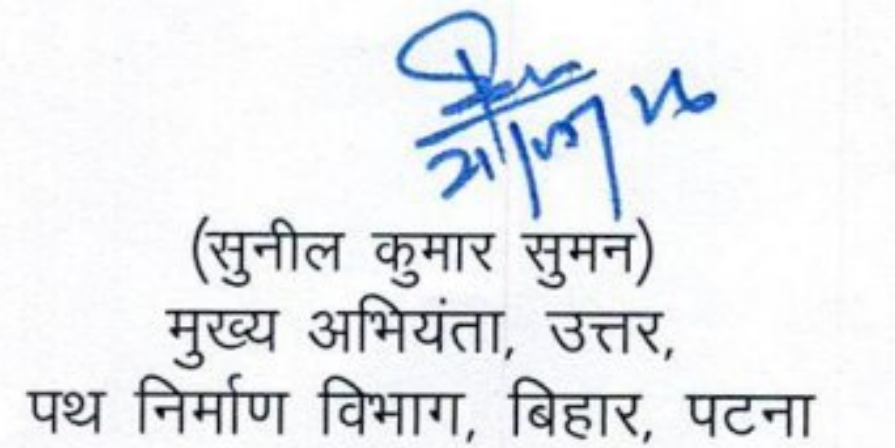 (सुनील कुमार सुमन)
मुख्य अभियंता, उत्तर,
पथ निर्माण विभाग, बिहार, पटना